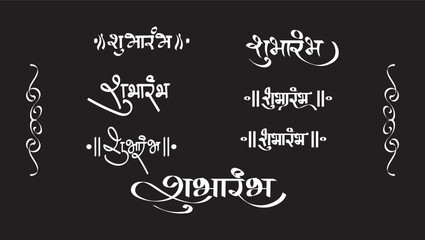 ॥शुभारंभ॥
शुभारंभ
शुभारंभ
॥शुभारंभ॥
॥शुभारंभ॥
॥शुभारंभ॥
शुभारंभ